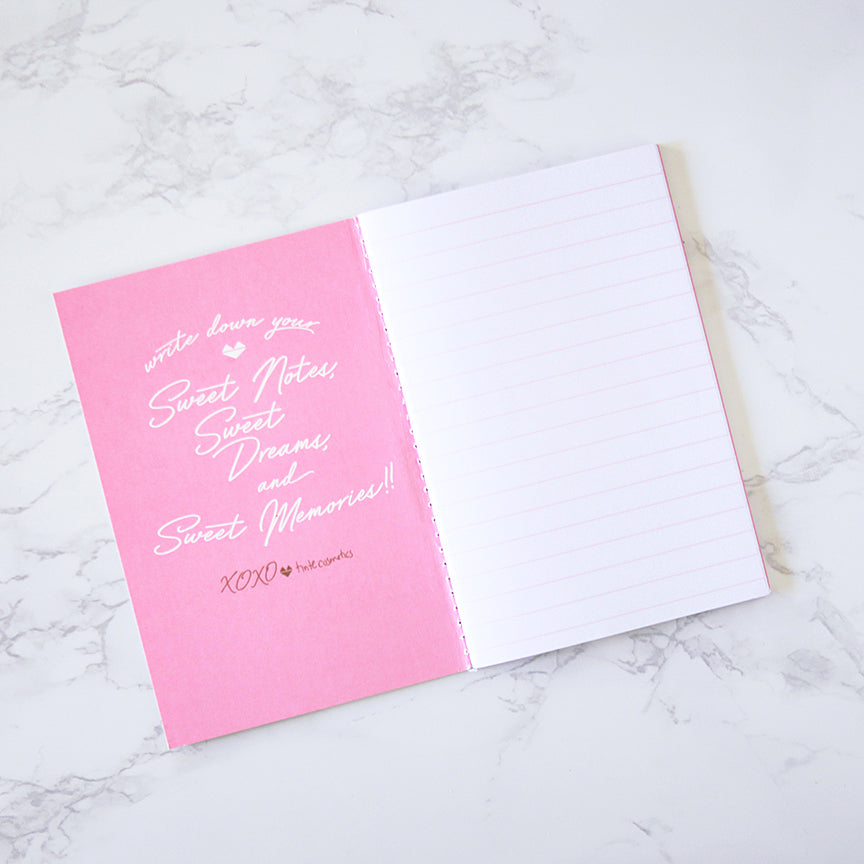 write down your
Sweet Notes,
Sweet
Dreams,
and
Sweet Memories!!
XOXO tinte cosmetics